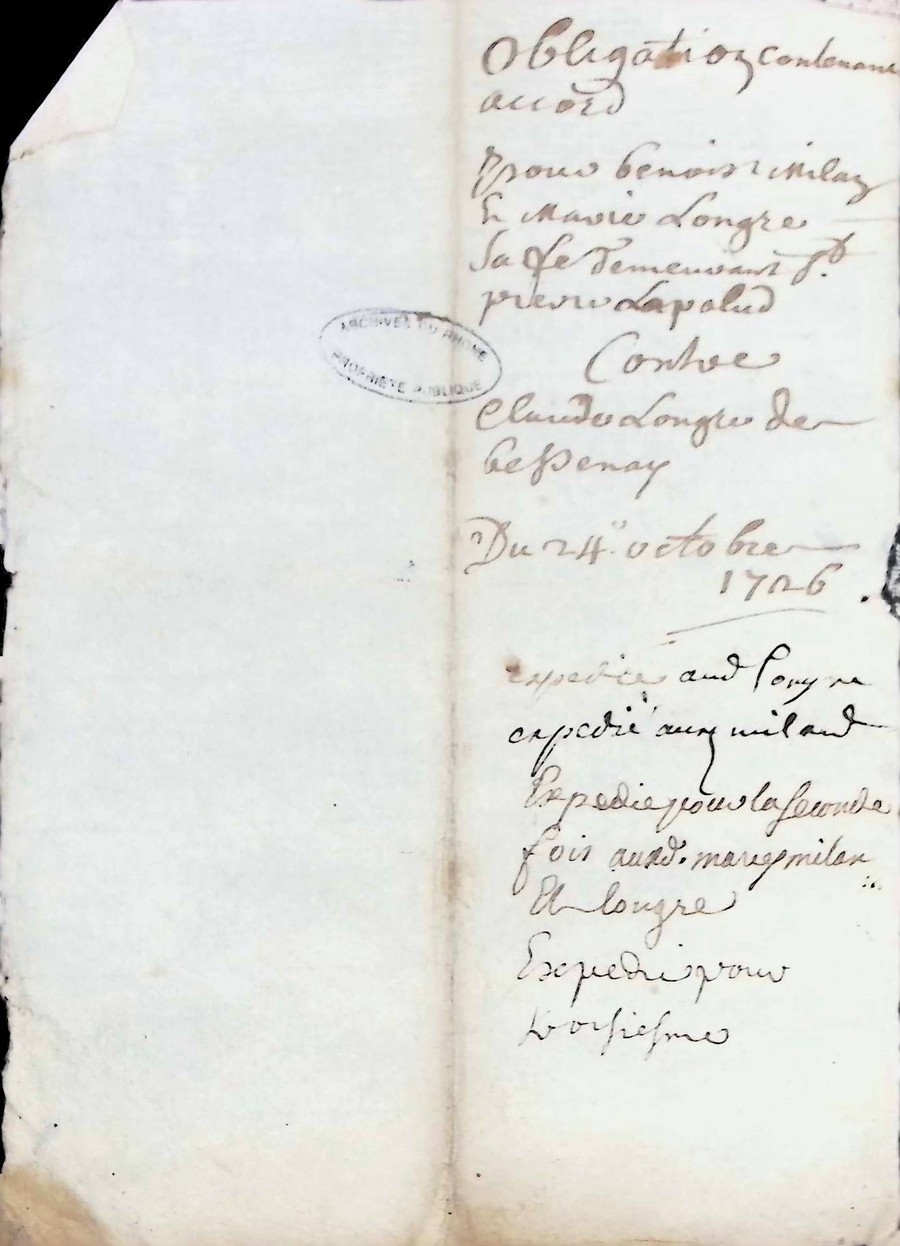 Obligation contenant
accord
pour benoist Milan
Et Marie Longre
sa fe demeurant St
pierre Lapalud
Contre
Claude Longre de
bessenay
Du 24e octobre
1726
ARCHIVES DU RHONE
PROPRIETE PUBLIQUE
expediee aud longre
expedié aux miland
Expedie pour la seconde
fois auxd. maries milan
Et longre
Expedie pour
troisiesme